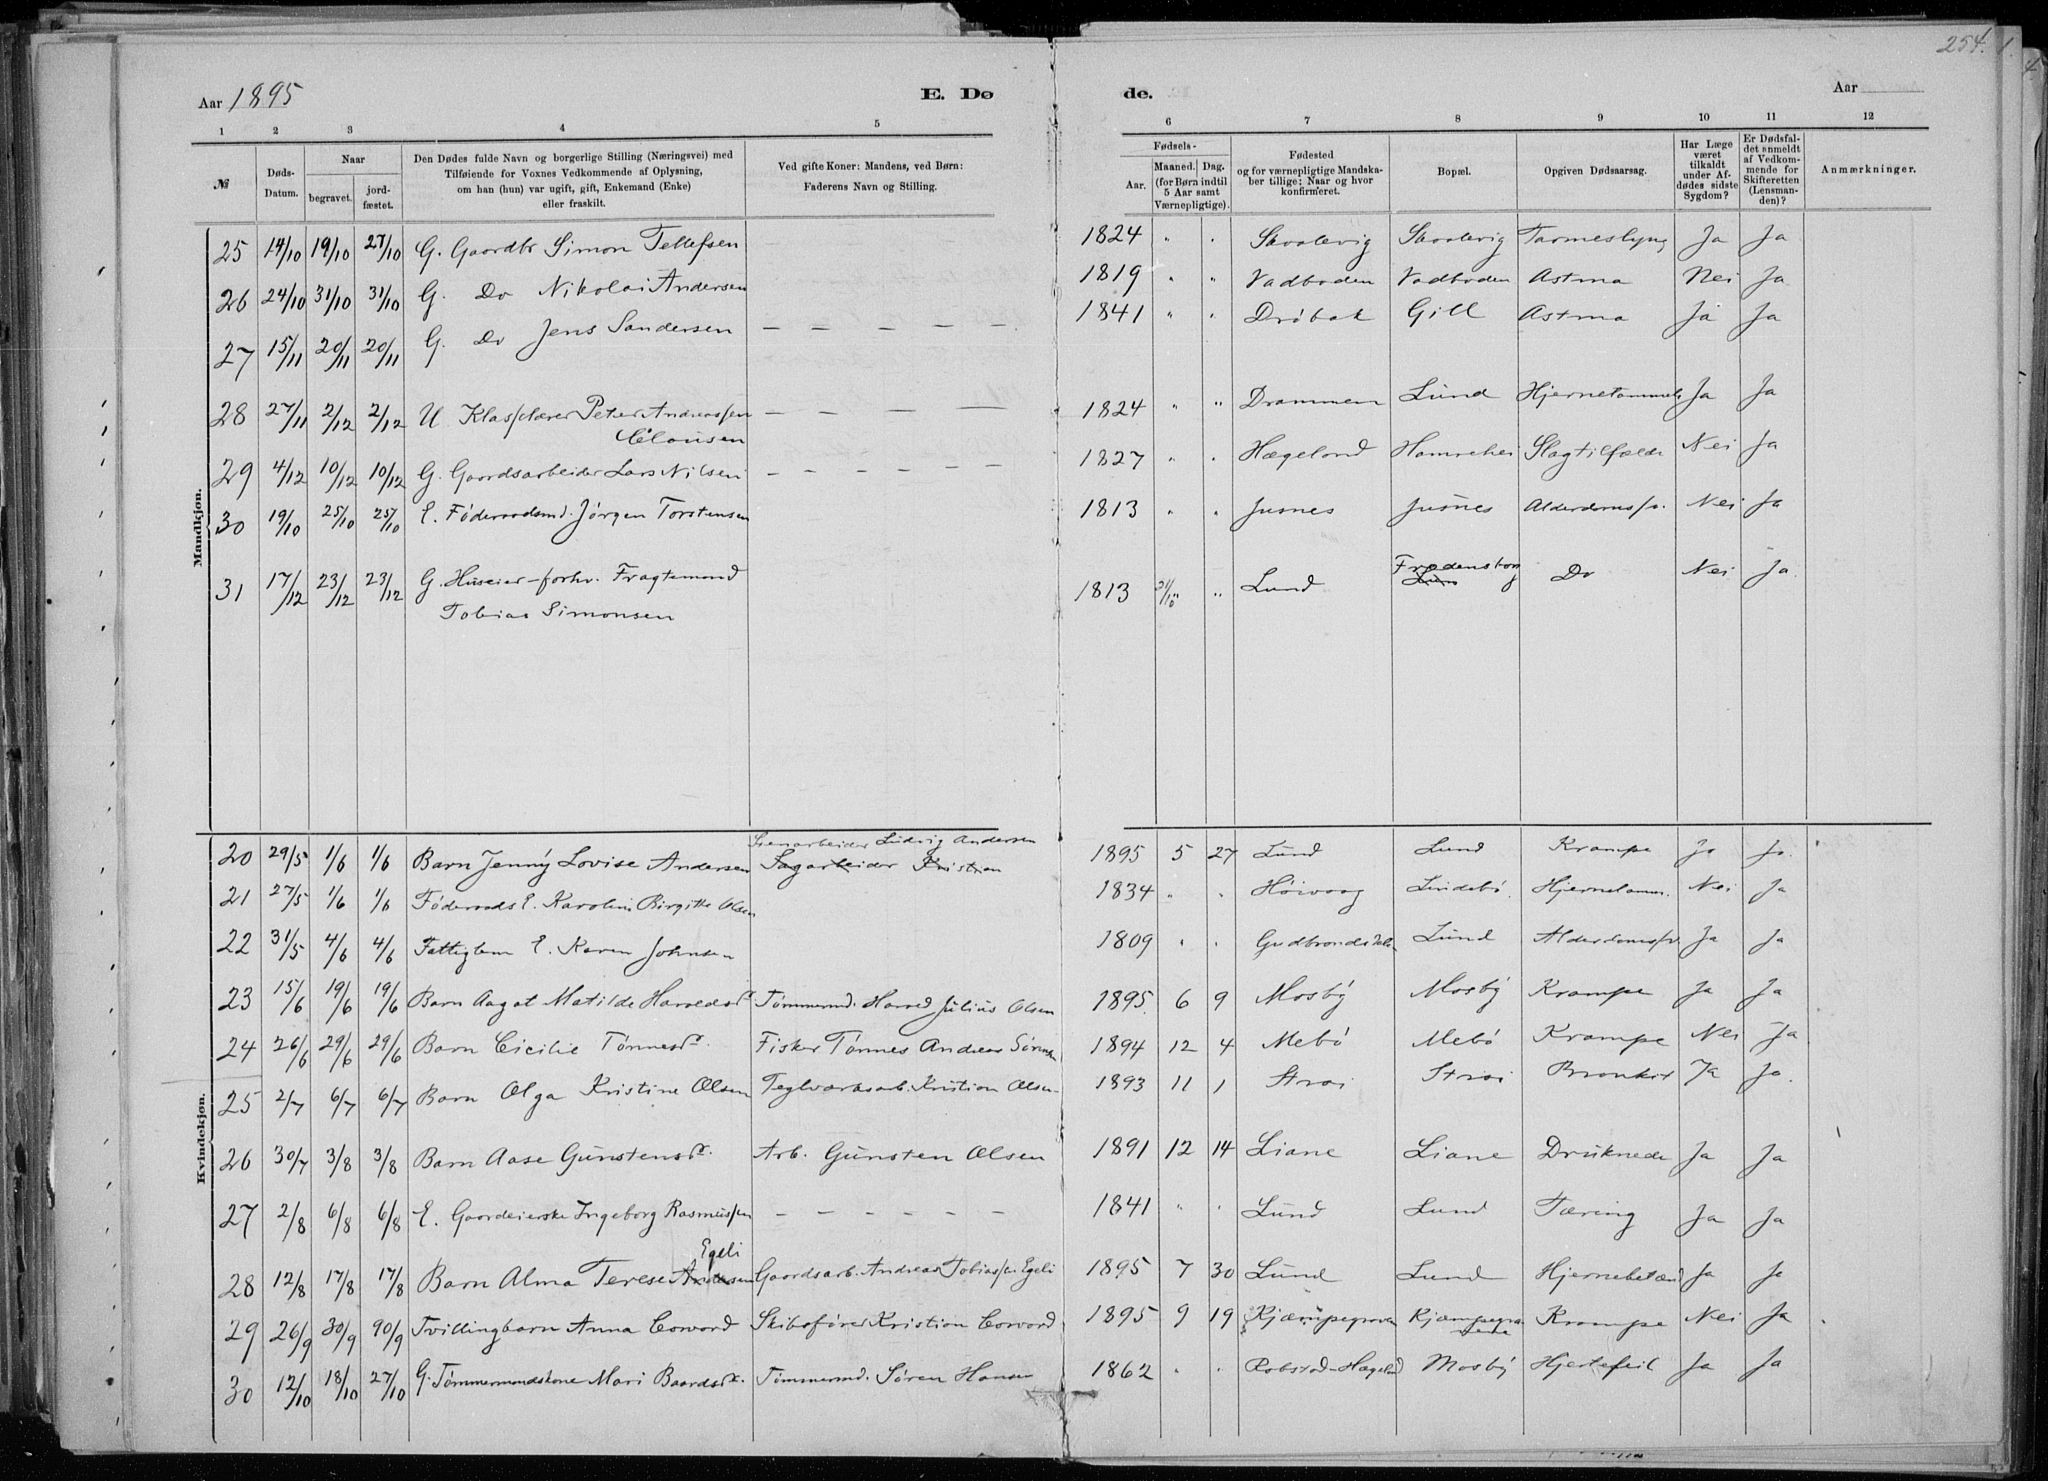 254.
Aar 1895 E. Dø de. Aar
1 2 3 4 5 6 7 8 9 10 11 12
№ Døds-Datum. Naar begravet. jordfæstet. Den Dødes fulde Navn og borgerlige Stilling (Næringsvei) med Tilføiende for Voxnes Vedkommende af Oplysning, om han (hun) var ugift, gift, Enkemand (Enke) eller fraskilt. Ved gifte Koner: Mandens, ved Børn: Faderens Navn og Stilling. Fødsels- Aar. Maaned. Dag. (for Børn indtil 5 Aar samt Værnepligtige). Fødested og for værnepligtige Mandskaber tillige: Naar og hvor konfirmeret. Bopæl. Opgiven Dødsaarsag. Har Læge været tilkaldt under Afdødes sidste Sygdom? Er Dødsfaldet anmeldt af Vedkommende for Skifteretten (Lensmanden)? Anmærkninger.
Mandkjøn.
25 14/10 19/10 27/10 G. Gaardbr Simon Tellefsen 1824 " " Skaalevig Skaalevig Tarmeslyng Ja Ja
26 24/10 31/10 31/10 G. Do Nikolai Andersen 1819 " " Vadboden Vadboden Astma Nei Ja
27 15/11 20/11 20/11 G. Do Jens Sandersen — — — — — — 1841 " " Drøbak Gill Astma Ja Ja
28 27/11 2/12 2/12 U Peter Andreassen — — — — 1824 " " Drammen Lund Ja Ja
Clausen
29 4/12 10/12 10/12 G. Gaardsarbeider Lars Nilsen — — — — — — 1827 " " Hægeland Hamrehei Slagtilfælde Nei Ja
30 19/10 25/10 25/10 E. Føderaadsmd. Jørgen Torstensen 1813 " " Jusnes Jusnes Alderdomssv. Nei Ja
31 17/12 23/12 23/12 G. Huseier-forhv. Fragtemand 1813 21/10 " Lund Fredensborg Do Nei Ja.
Tobias Simonsen
Kvindekjøn.
20 29/5 1/6 1/6 Barn Jenny Lovise Andersen Ludvig Andersen Sagarbeider Kristian 1895 5 27 Lund Lund Krampe Ja Ja.
21 27/5 1/6 1/6 Føderaads E. Karoline Birgitte Olsen 1834 " " Høivaag Lindebø. Hjernelamm. Nei Ja
22 31/5 4/6 4/6 Fattiglem E. Karen Johnsen 1809 " " Gudbrandsdalen Lund Alderdomssv. Ja Ja
23 15/6 19/6 19/6 Barn Aagot Matilde Haraldsd. Tømmermd. Harald Julius Olsen 1895. 6 9 Mosby Mosby Krampe Ja Ja
24 26/6 29/6 29/6 Barn Cicilie Tønnesd. Fisker Tønnes Andreas Sørensen 1894 12 4 Mebø Mebø Krampe Nei Ja
25 2/7 6/7 6/7 Barn Olga Kristine Olsen Teglværksarb. Kristian Olsen 1893 11 1 Strai Strai Bronkit Ja Ja.
26 30/7 3/8 3/8 Barn Aase Gunstensd. Arb. Gunsten Olsen 1891 12 14 Liane Liane Druknede Ja Ja
27 2/8 6/8 6/8 E. Gaardeierske Ingeborg Rasmussen — — — — — — 1841 " " Lund Lund Tæring Ja Ja
Egeli
28 12/8 17/8 17/8 Barn Alma Terese Andersen Gaardsarb. Andreas Tobiassen Egeli 1895 7 30 Lund Lund Hjernebetænd Ja Ja
29 26/9 30/9 90/9 Tvillingbarn Anna Corvard Skibsfører Kristian Corvard 1895 9 19 Kjæmpegraven Krampe Nei Ja
30 12/10 18/10 27/10 G. Tømmermandskone Mari Baardsd. Tømmermd. Søren Hansen 1862 " " Robstad-Hægeland Mosby Hjertefeil Ja Ja